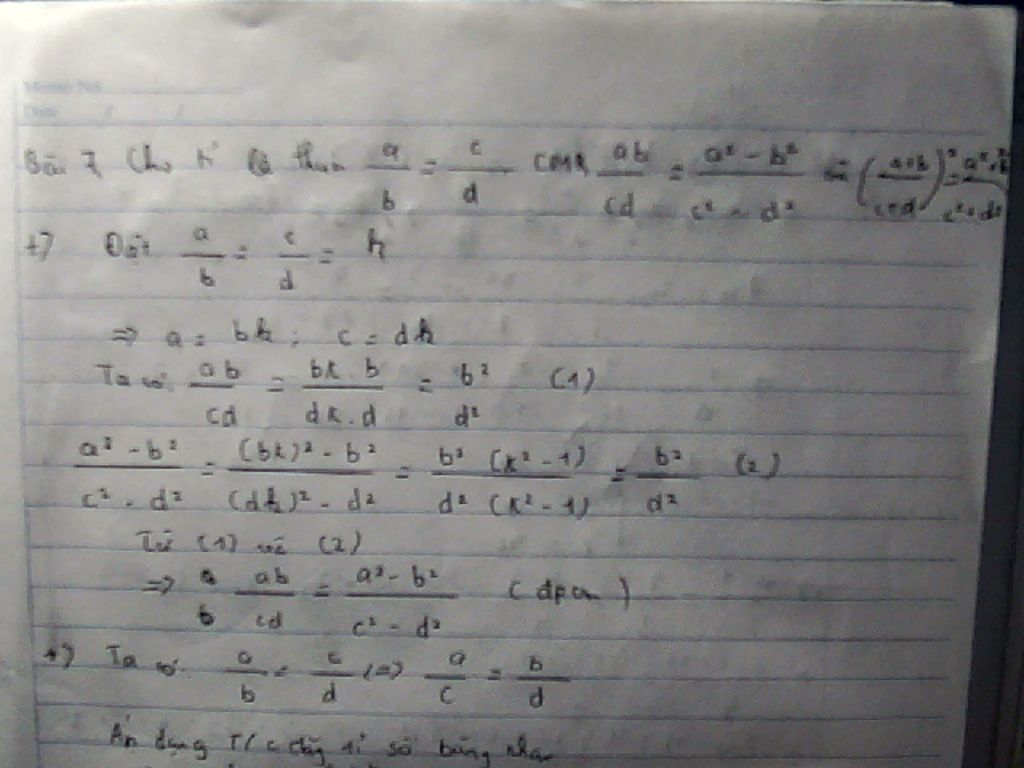 Bài 7, Cho tỉ lệ thức a/b = c/d CMR ab/cd = (a² - b²)/(c² - d²) và ((a+b)/(c+d))² = (a² + b²)/(c² + d²)
+) Đặt a/b = c/d = k
=> a = bk ; c = dk
Ta có ab/cd = (bk . b)/(dk . d) = b²/d² (1)
(a² - b²)/(c² - d²) = ((bk)² - b²)/((dk)² - d²) = (b² (k² - 1))/(d² (k² - 1)) = b²/d² (2)
Từ (1) và (2)
=> ab/cd = (a² - b²)/(c² - d²) (dpcm)
+) Ta có a/b = c/d => a/c = b/d
Áp dụng T/c dãy tỉ số bằng nhau